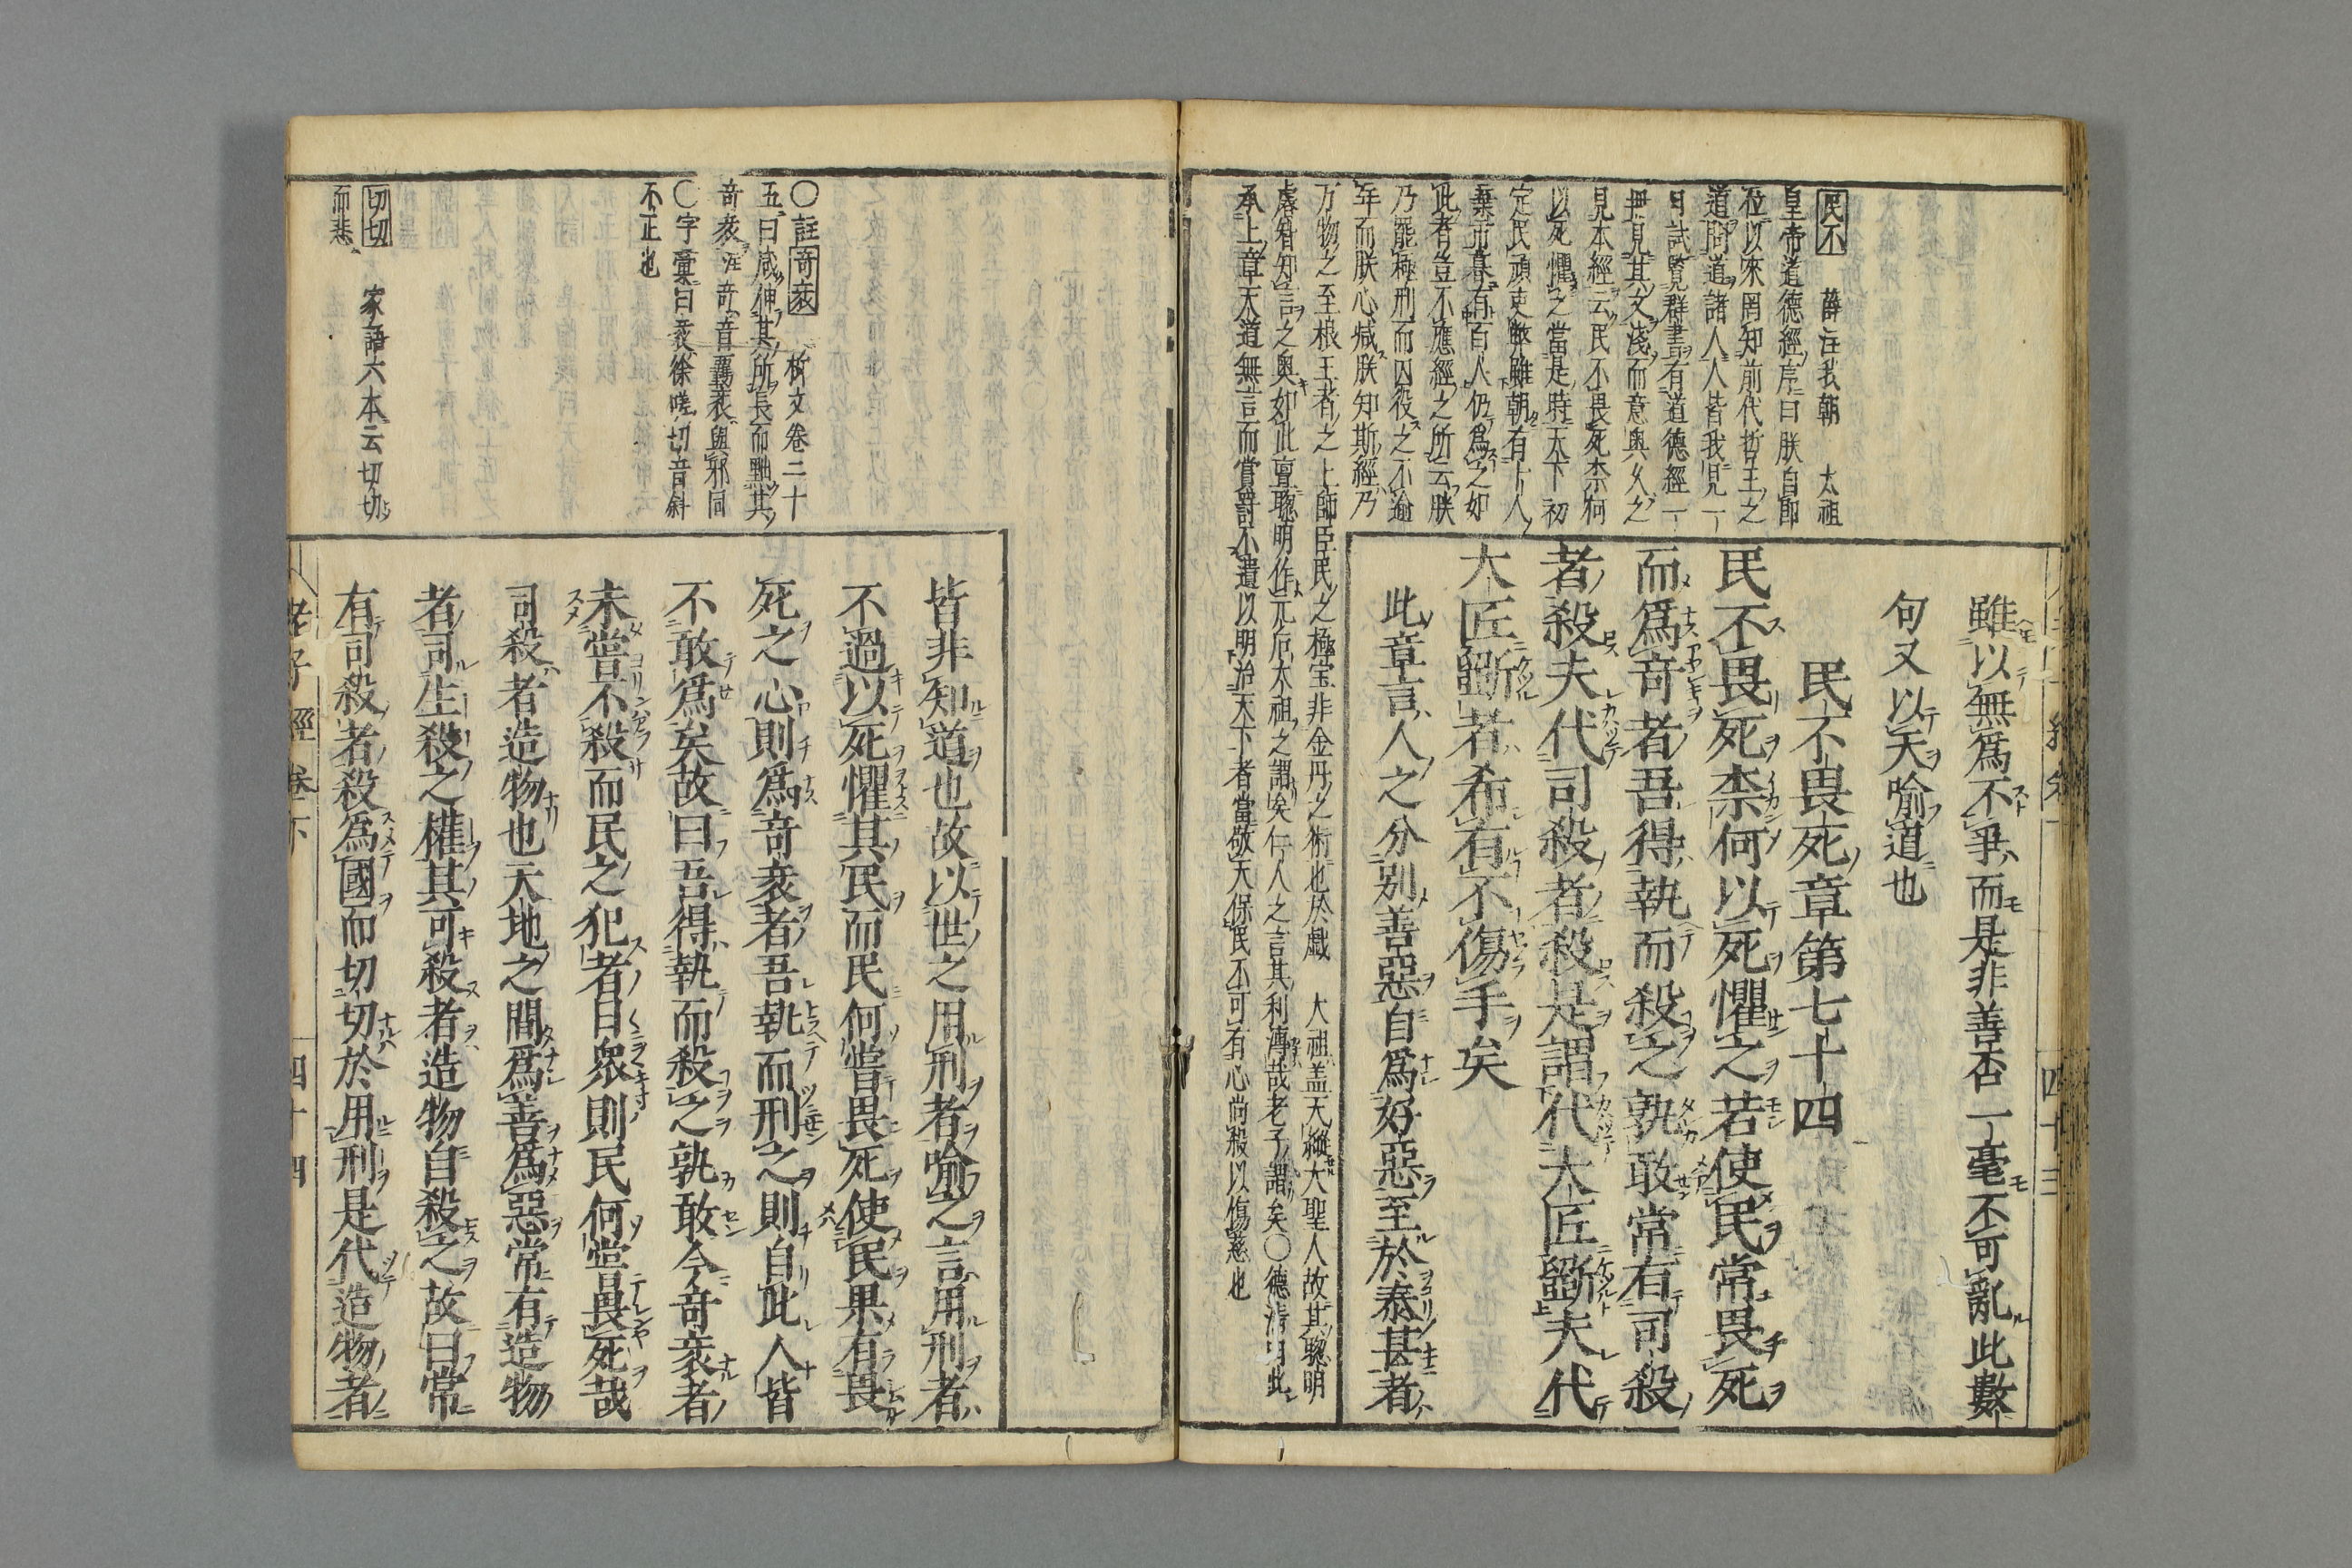 雖以無爲不爭而是非善否一毫不可亂此數
句又以天喻道也
民不畏死章第七十四
民不畏死柰何以死懼之若使民常畏死
而爲奇者吾得執而殺之孰敢常有司殺
者殺夫代司殺者殺是謂代大匠斲夫代
大匠斲者希有不傷手矣
此章言人之分別善惡自爲好惡至於泰甚者
民不 薛注我朝 太祖
皇帝道德經序曰朕自卽
位以來罔知前代哲王之
道問道諸人人皆我見一
日試覽群書有道德經一
冊見其文淺而意奧久之
見本經云民不畏死柰何
以死懼之當是時天下初
定民頑吏弊雖朝有十人
棄市暮有百人仍爲之如
此者豈不應經之所云朕
乃罷極刑而囚役之不逾
年而朕心減朕知斯經乃
万物之至根王者之上師臣民之極宝非金丹之術也於戲 大祖盖天縱大聖人故其聰明
睿智知言之奧如此亶聰明作元后太祖之謂矣仁人之言其利溥哉老子謂矣○德清曰此
承上章天道無言而賞罰不遺以明治天下者當敬天保民不可有心尚殺以傷慈也
皆非知道也故以世之用刑者喻之言用刑者
不過以死懼其民而民何嘗畏死使民果有畏
死之心則爲奇衺者吾執而刑之則自此人皆
不敢爲矣故曰吾得執而殺之孰敢今奇衺者
未嘗不殺而民之犯者日衆則民何嘗畏死哉
司殺者造物也天地之間爲善爲惡常有造物
者司生殺之權其可殺者造物自殺之故曰常
有司殺者殺爲國而切切於用刑是代造物者
○註奇衺 析文卷二十
五曰咸伸其所長而黜其
奇衺注奇音羈衺與邪同
○字彙曰衺徐嗟切音斜
不正也
切切 家語六本云切切
而悲
老子經卷下 四十四
四十三